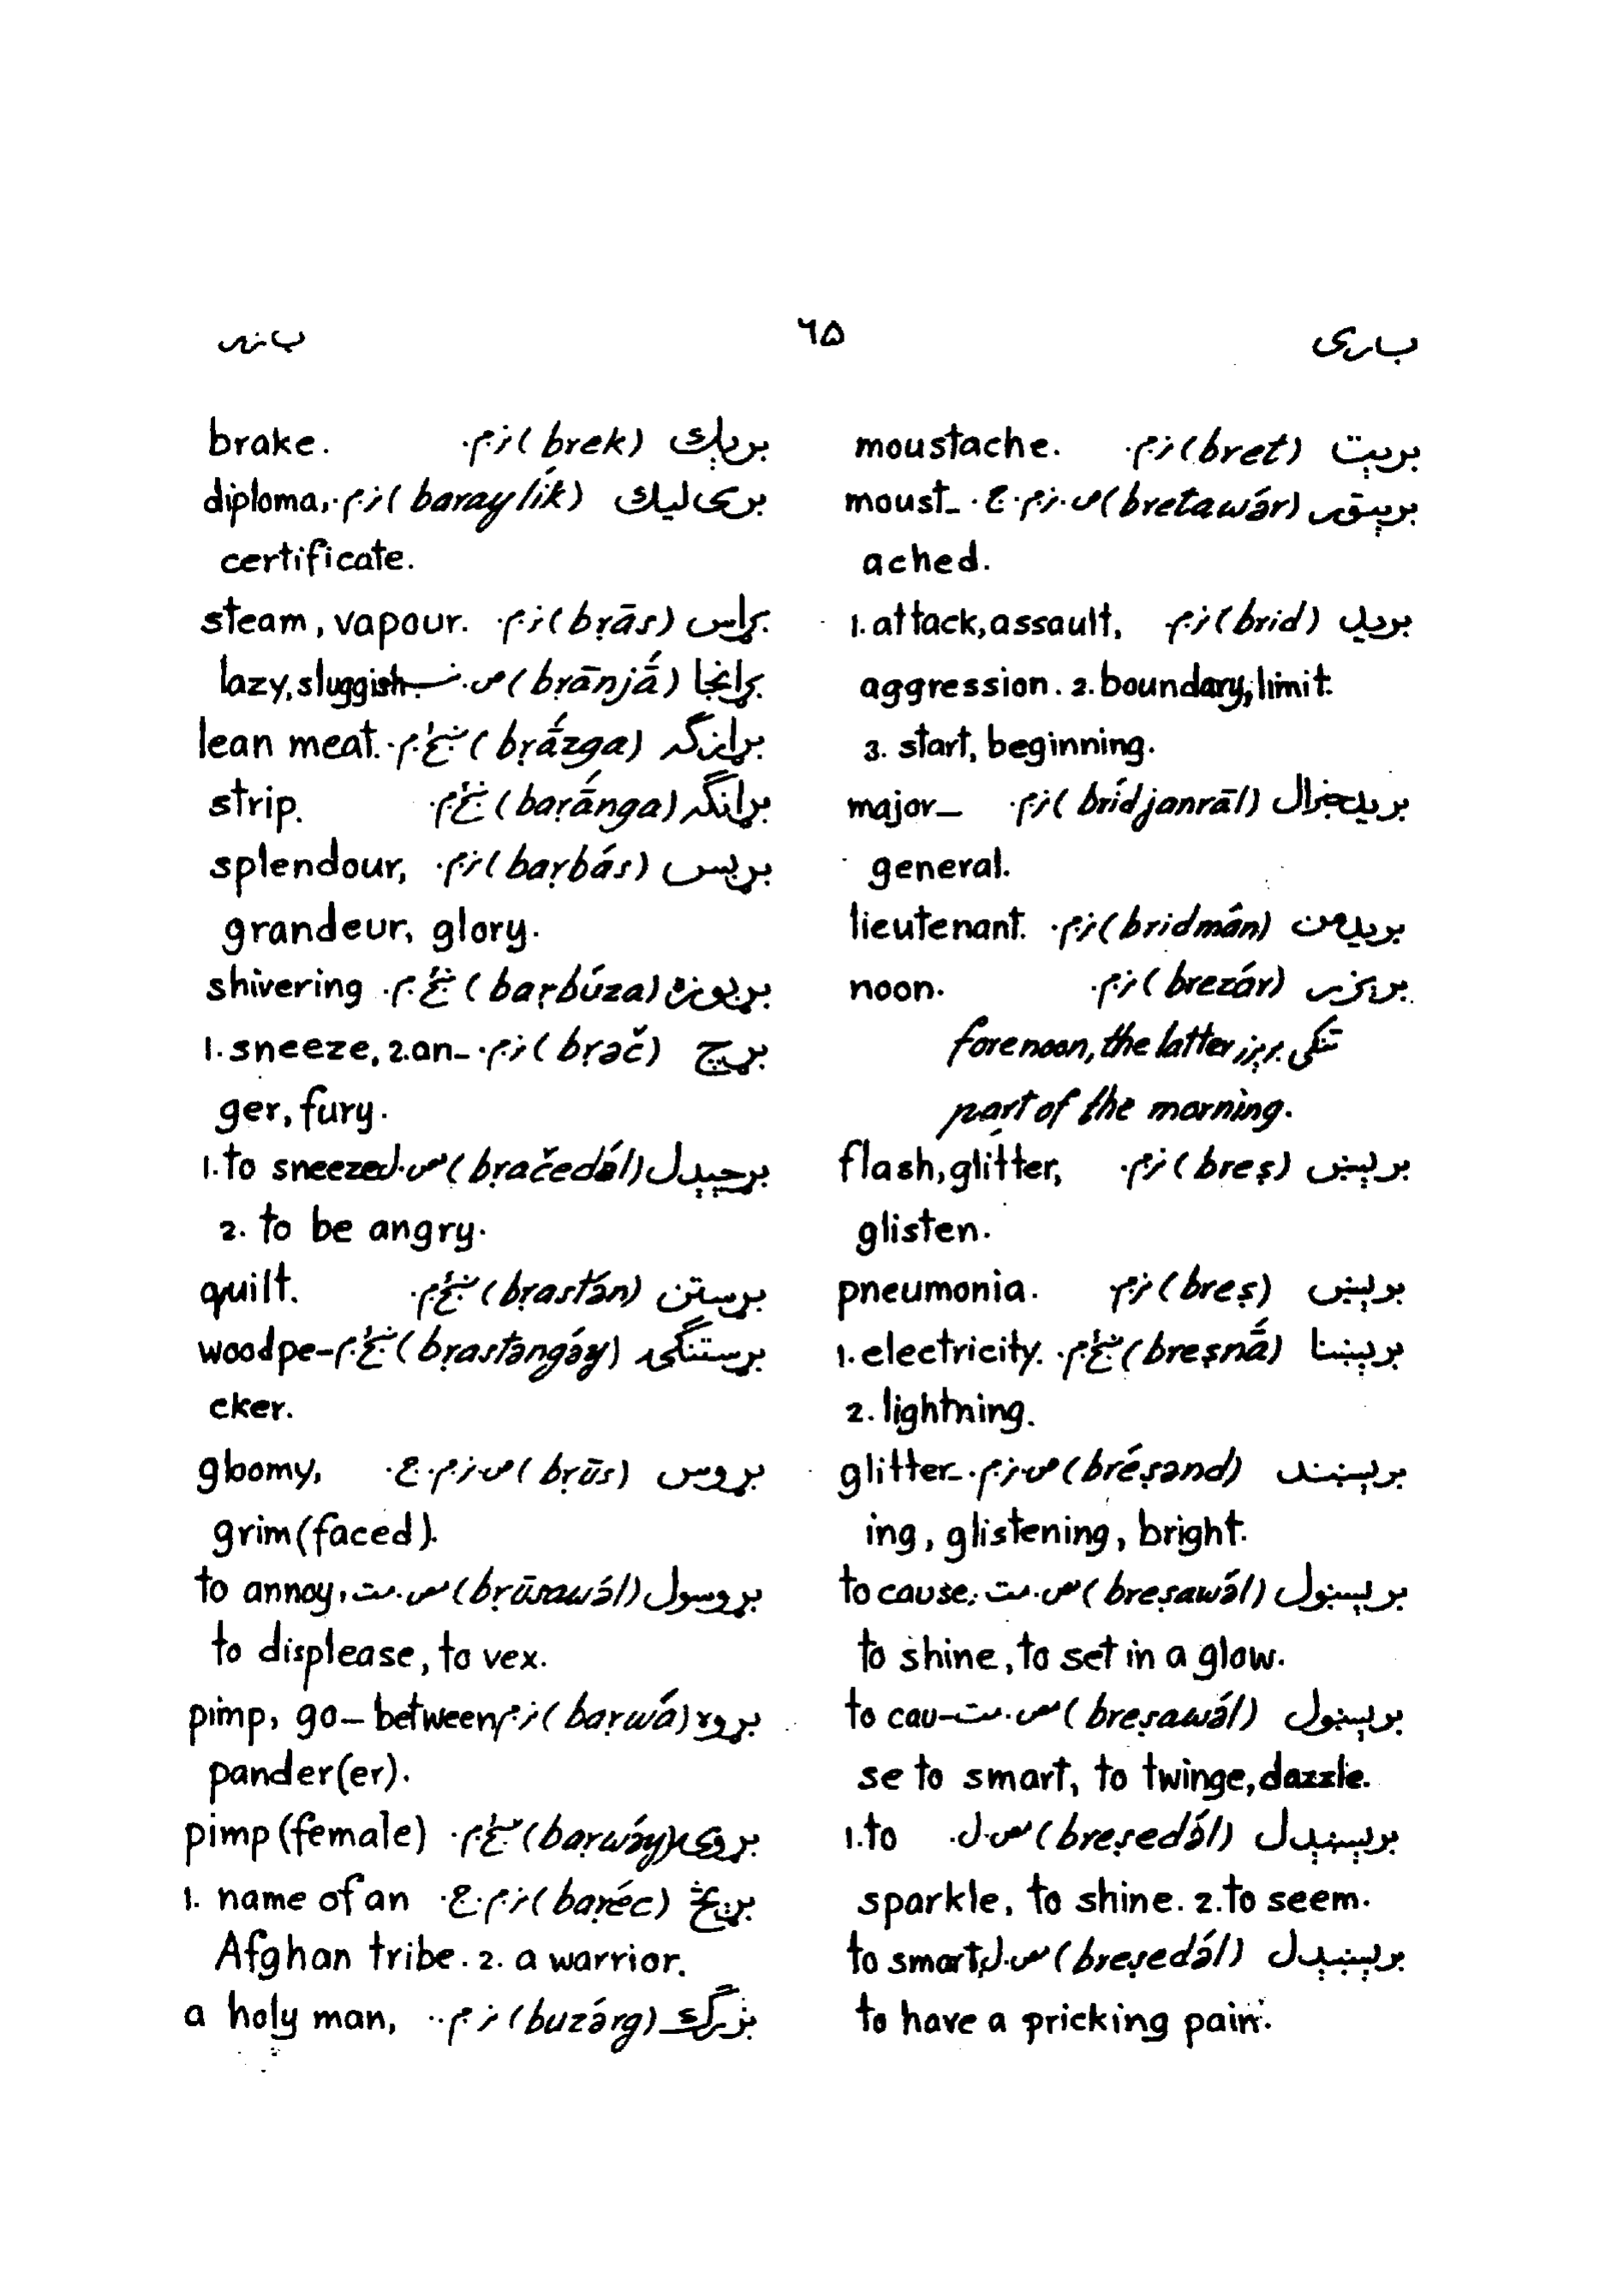 ب‌ری ۶۵ ب‌زر
بریت (bret) ن‌م. moustache.
بریتور (bretawár) ص. ن‌م. ج. moust-
ached.
برید (brid) ن‌م 1. attack, assault,
aggression. 2. boundary, limit.
3. start, beginning.
بریدجنرال (brídjanrāl) ن‌م. major-
general.
بریدمن (bridmán) ن‌م. lieutenant.
(brezár) ن‌م. noon.
forenoon, the latter
part of the morning.
برېښ (breṣ) ن‌م. flash, glitter,
glisten.
برېښ (breṣ) ن‌م pneumonia.
برېښنا (breṣnā́) 1. electricity.
2. lightning.
برېښند (bréṣənd) ص. ن‌م. glitter-
ing, glistening, bright.
برېښول (breṣawə́l) مص. مت to cause,
to shine, to set in a glow.
برېښول (breṣawə́l) مص. مت to cau-
se to smart, to twinge, dazzle.
برېښېدل (breṣedə́l) مص. ل. 1. to
sparkle, to shine. 2. to seem.
برېښېدل (breṣedə́l) مص. ل to smart,
to have a pricking pain.
برېك (brek) ن‌م. brake.
بری ليك (baraylík) ن‌م. diploma,
certificate.
بړاس (bṛās) ن‌م. steam, vapour.
بړانجا (bṛānjā́) ص. lazy, sluggish.
بړازګه (bṛā́zga) lean meat.
بړانګه (baṛā́nga) strip.
بړبس (baṛbás) ن‌م. splendour,
grandeur, glory.
بړبوزه (baṛbúza) shivering
بړچ (bṛəč) ن‌م. 1. sneeze, 2. an-
ger, fury.
بړچېدل (bṛačedə́l) مص. ل 1. to sneeze
2. to be angry.
بړستن (bṛastə́n) quilt.
بړستنګۍ (bṛastəngə́y) woodpe-
cker.
بړوس (bṛūs) ص. ن‌م. ج. gloomy,
grim (faced).
بړوسول (bṛūsawə́l) مص. مت to annoy,
to displease, to vex.
بړوه (baṛwá) ن‌م pimp, go-between
pander(er).
بړوۍ (baṛwə́y) pimp (female)
بړېڅ (baṛéc) ن‌م. ج. 1. name of an
Afghan tribe. 2. a warrior.
بزرګ (buzə́rg) ن‌م. a holy man,